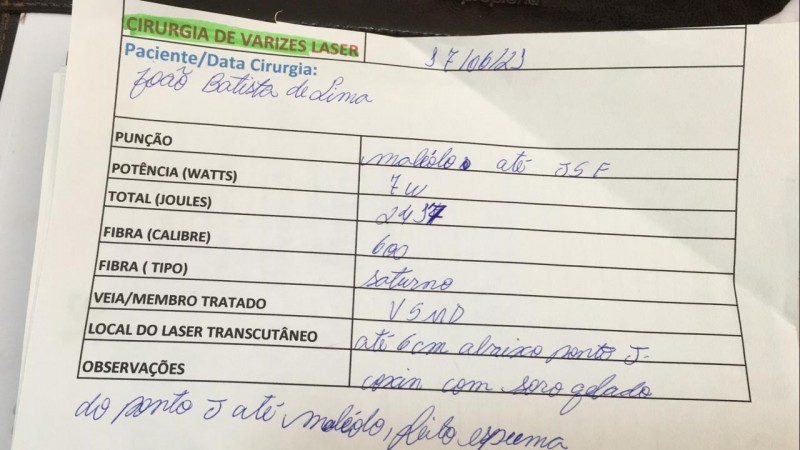 CIRURGIA DE VARIZES LASER 17/06/21
Paciente/Data Cirurgia:
João Batista de Lima
PUNÇÃO maléolo até JSF
POTÊNCIA (WATTS) 7W
TOTAL (JOULES)
FIBRA (CALIBRE) 600
FIBRA ( TIPO) saturno
VEIA/MEMBRO TRATADO VSMD
LOCAL DO LASER TRANSCUTÂNEO até 6cm abaixo ponto J-
OBSERVAÇÕES coxin com soro gelado
do ponto J até maléolo, feito espuma